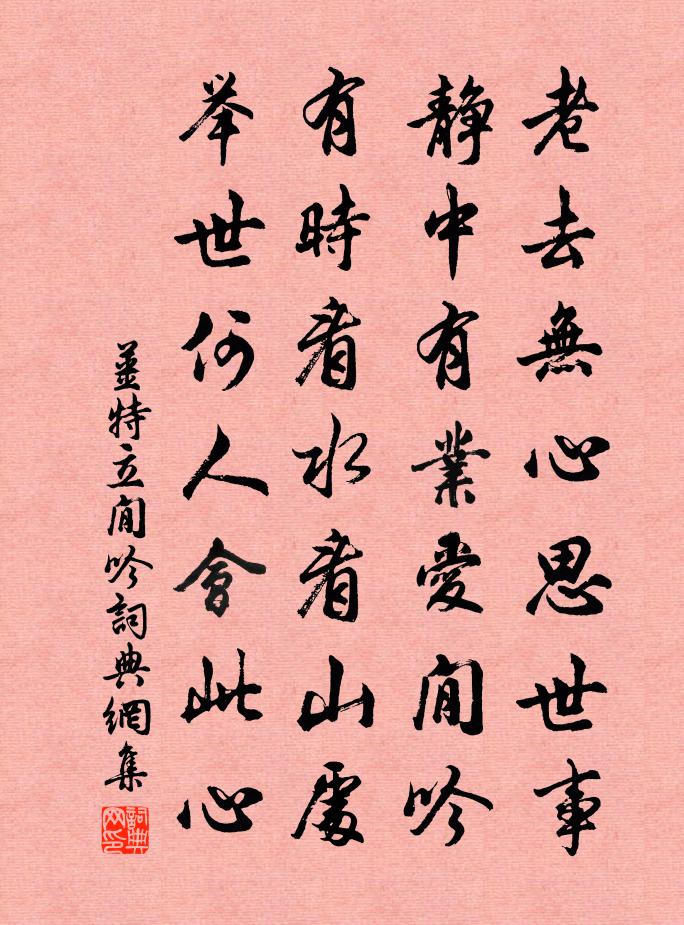 老去無心思世事
靜中有業愛閒吟
有時看水看山處
举世何人會此心
姜特立閒吟詞典網集
詞典网印